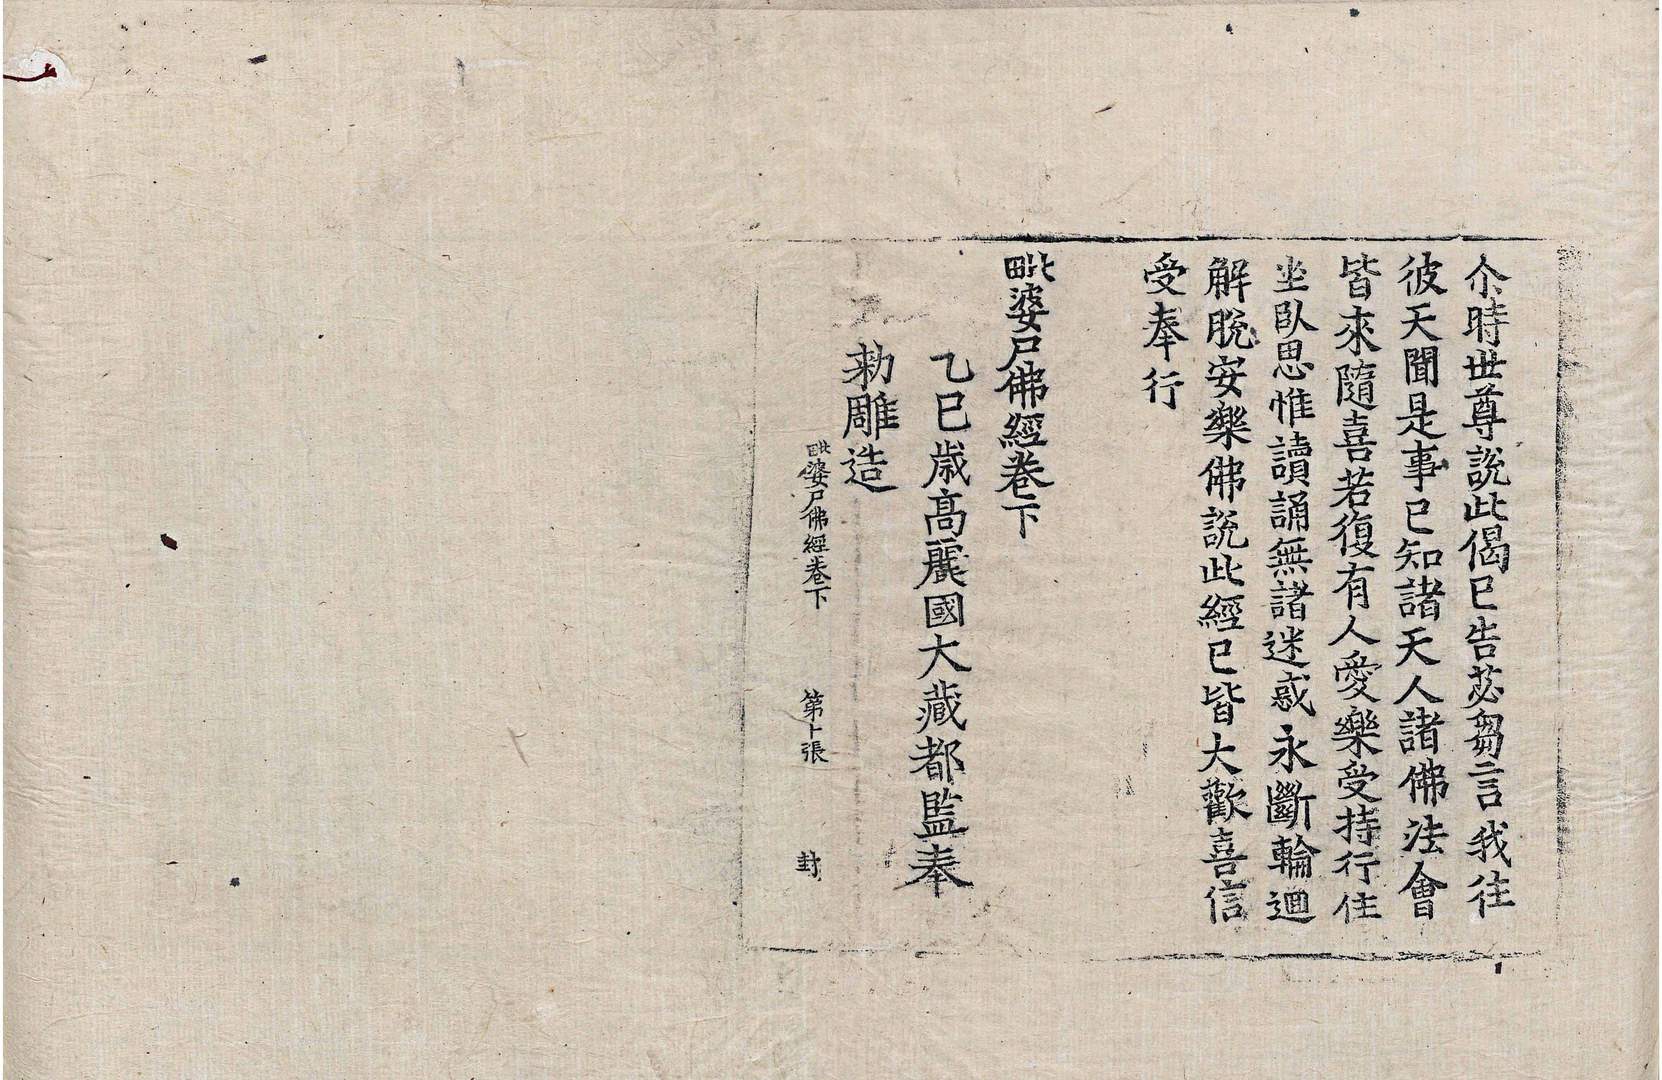 尒時世尊說此偈已告苾芻言我往
彼天聞是事已知諸天人諸佛法會
皆來隨喜若復有人愛樂受持行住
坐臥思惟讀誦無諸迷惑永斷輪迴
解脫安樂佛說此經已皆大歡喜信
受奉行
毗婆尸佛經卷下
乙巳歲高麗國大藏都監奉
勑雕造
毗婆尸佛經卷下 第十張 封